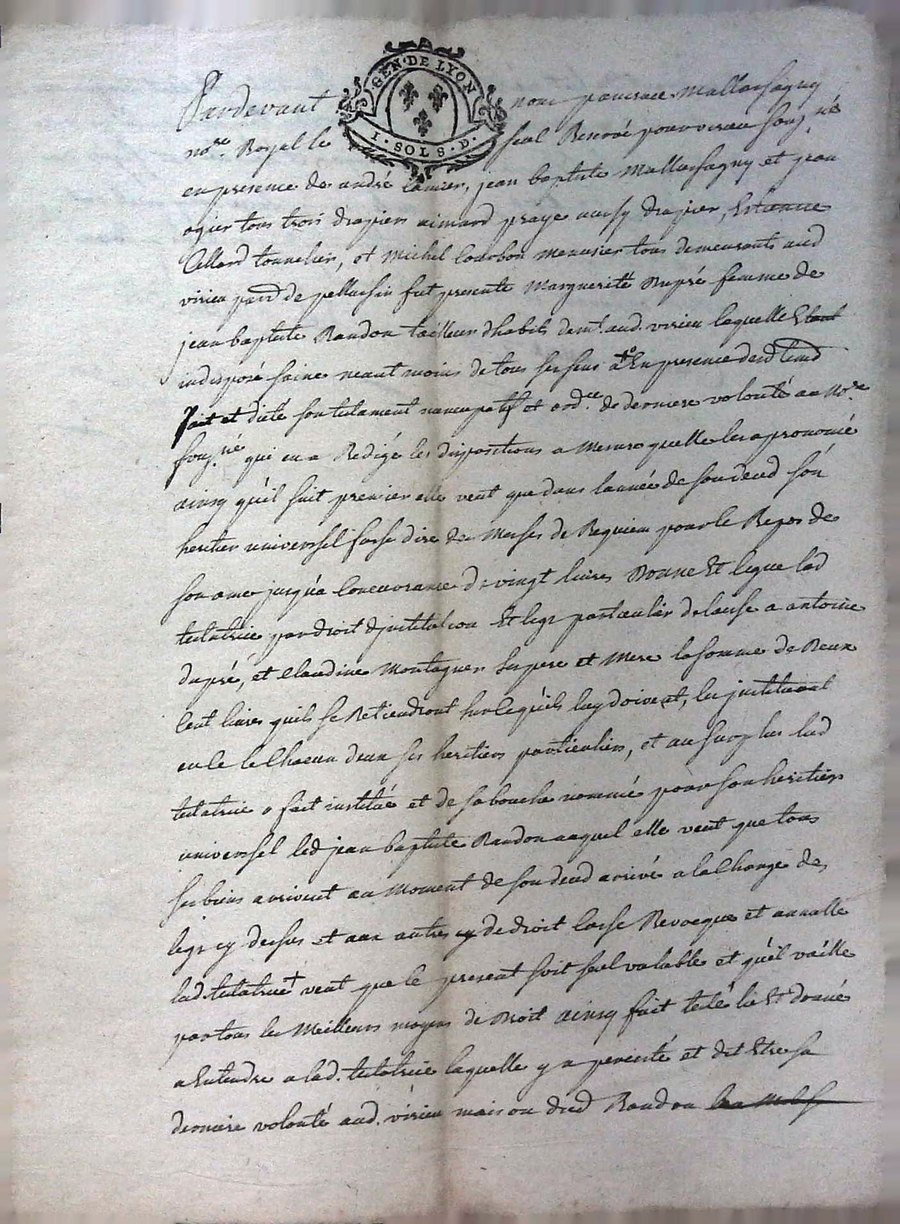 GEN. DE LYON
I. SOLS. D.
Pardevant nous pancrace Mallassagny
no.re Royal le seul Reservé pour virieu souz.né
en presence de andré jean baptiste Mallassagny et jean
ogier tous trois drapiers aimard praye aussy drapier, Estienne
Allard tonnelier, et Michel Courbon Menusier tous demeurants aud
virieu par.d de pellussin fut presente Marguerite Dupré femme de
jean baptiste Randon tailleur dhabits dem.t aud. virieu laquelle Etant
indisposé saine neant moins de tous ses sens a En presence desd temd
fait et dicté son testament nuncupatif et ord.ce de derniere volonté au No.re
souz.né qui en a Redigé les dispositions a Mesure quelle les a prononcé
ainsy quil suit premier elle veut que dans lannée de son deced son
heritier universsel fasse dire des Messes de Requiem pour le Repos de
son ame jusqua Concurance de vingt livres Donne Et legue lad
testatrice par droit djnstitution Et legs particulier delaisse a antoine
dupré, et Claudine Montagner ses pere et Mere la somme de Deux
Cent livres quils se Retiendront sur ce quils luy doivent, les jnstituant
en ce le Chacun deux ses heritiers particuliers, et au surplus lad
testatrice a fait institué et de sa bouche nommé pour son heritier
universsel led jean baptiste Randon auquel elle veut que tous
ses biens arrivent au Moment de son deced arrivé a la Charge des
legs cy dessus et aux autres cy de droit Casse Revocque et annulle
lad. testatrice + veut que le present soit seul valable et quil vaille
par tous les Meilleurs moyens de Droit ainsy fait testé lu Et donné
a Entendre a lad. testatrice laquelle y a percisté et dit Etre sa
derniere volonté aud. virieu maison dud Randon